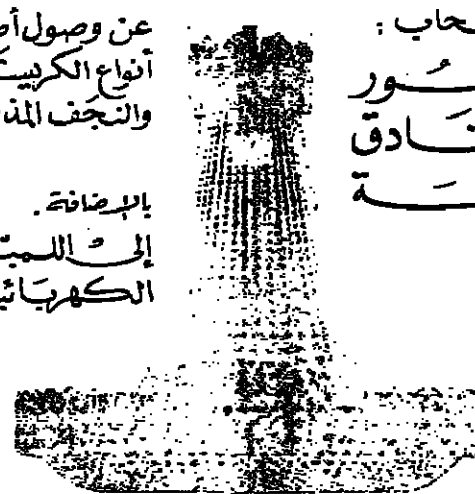 حاب :
ـُـور
ـنـادق
ـَـة
عن وصول أص
أنواع الكريست
والنجَف المذ
بالإضافة .
إلى اللمبـ
الكهربَائيـ